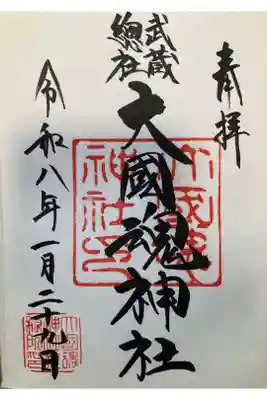 奉拝
武蔵
總社
大國魂神社
令和八年一月二十九日
大國魂
神社印